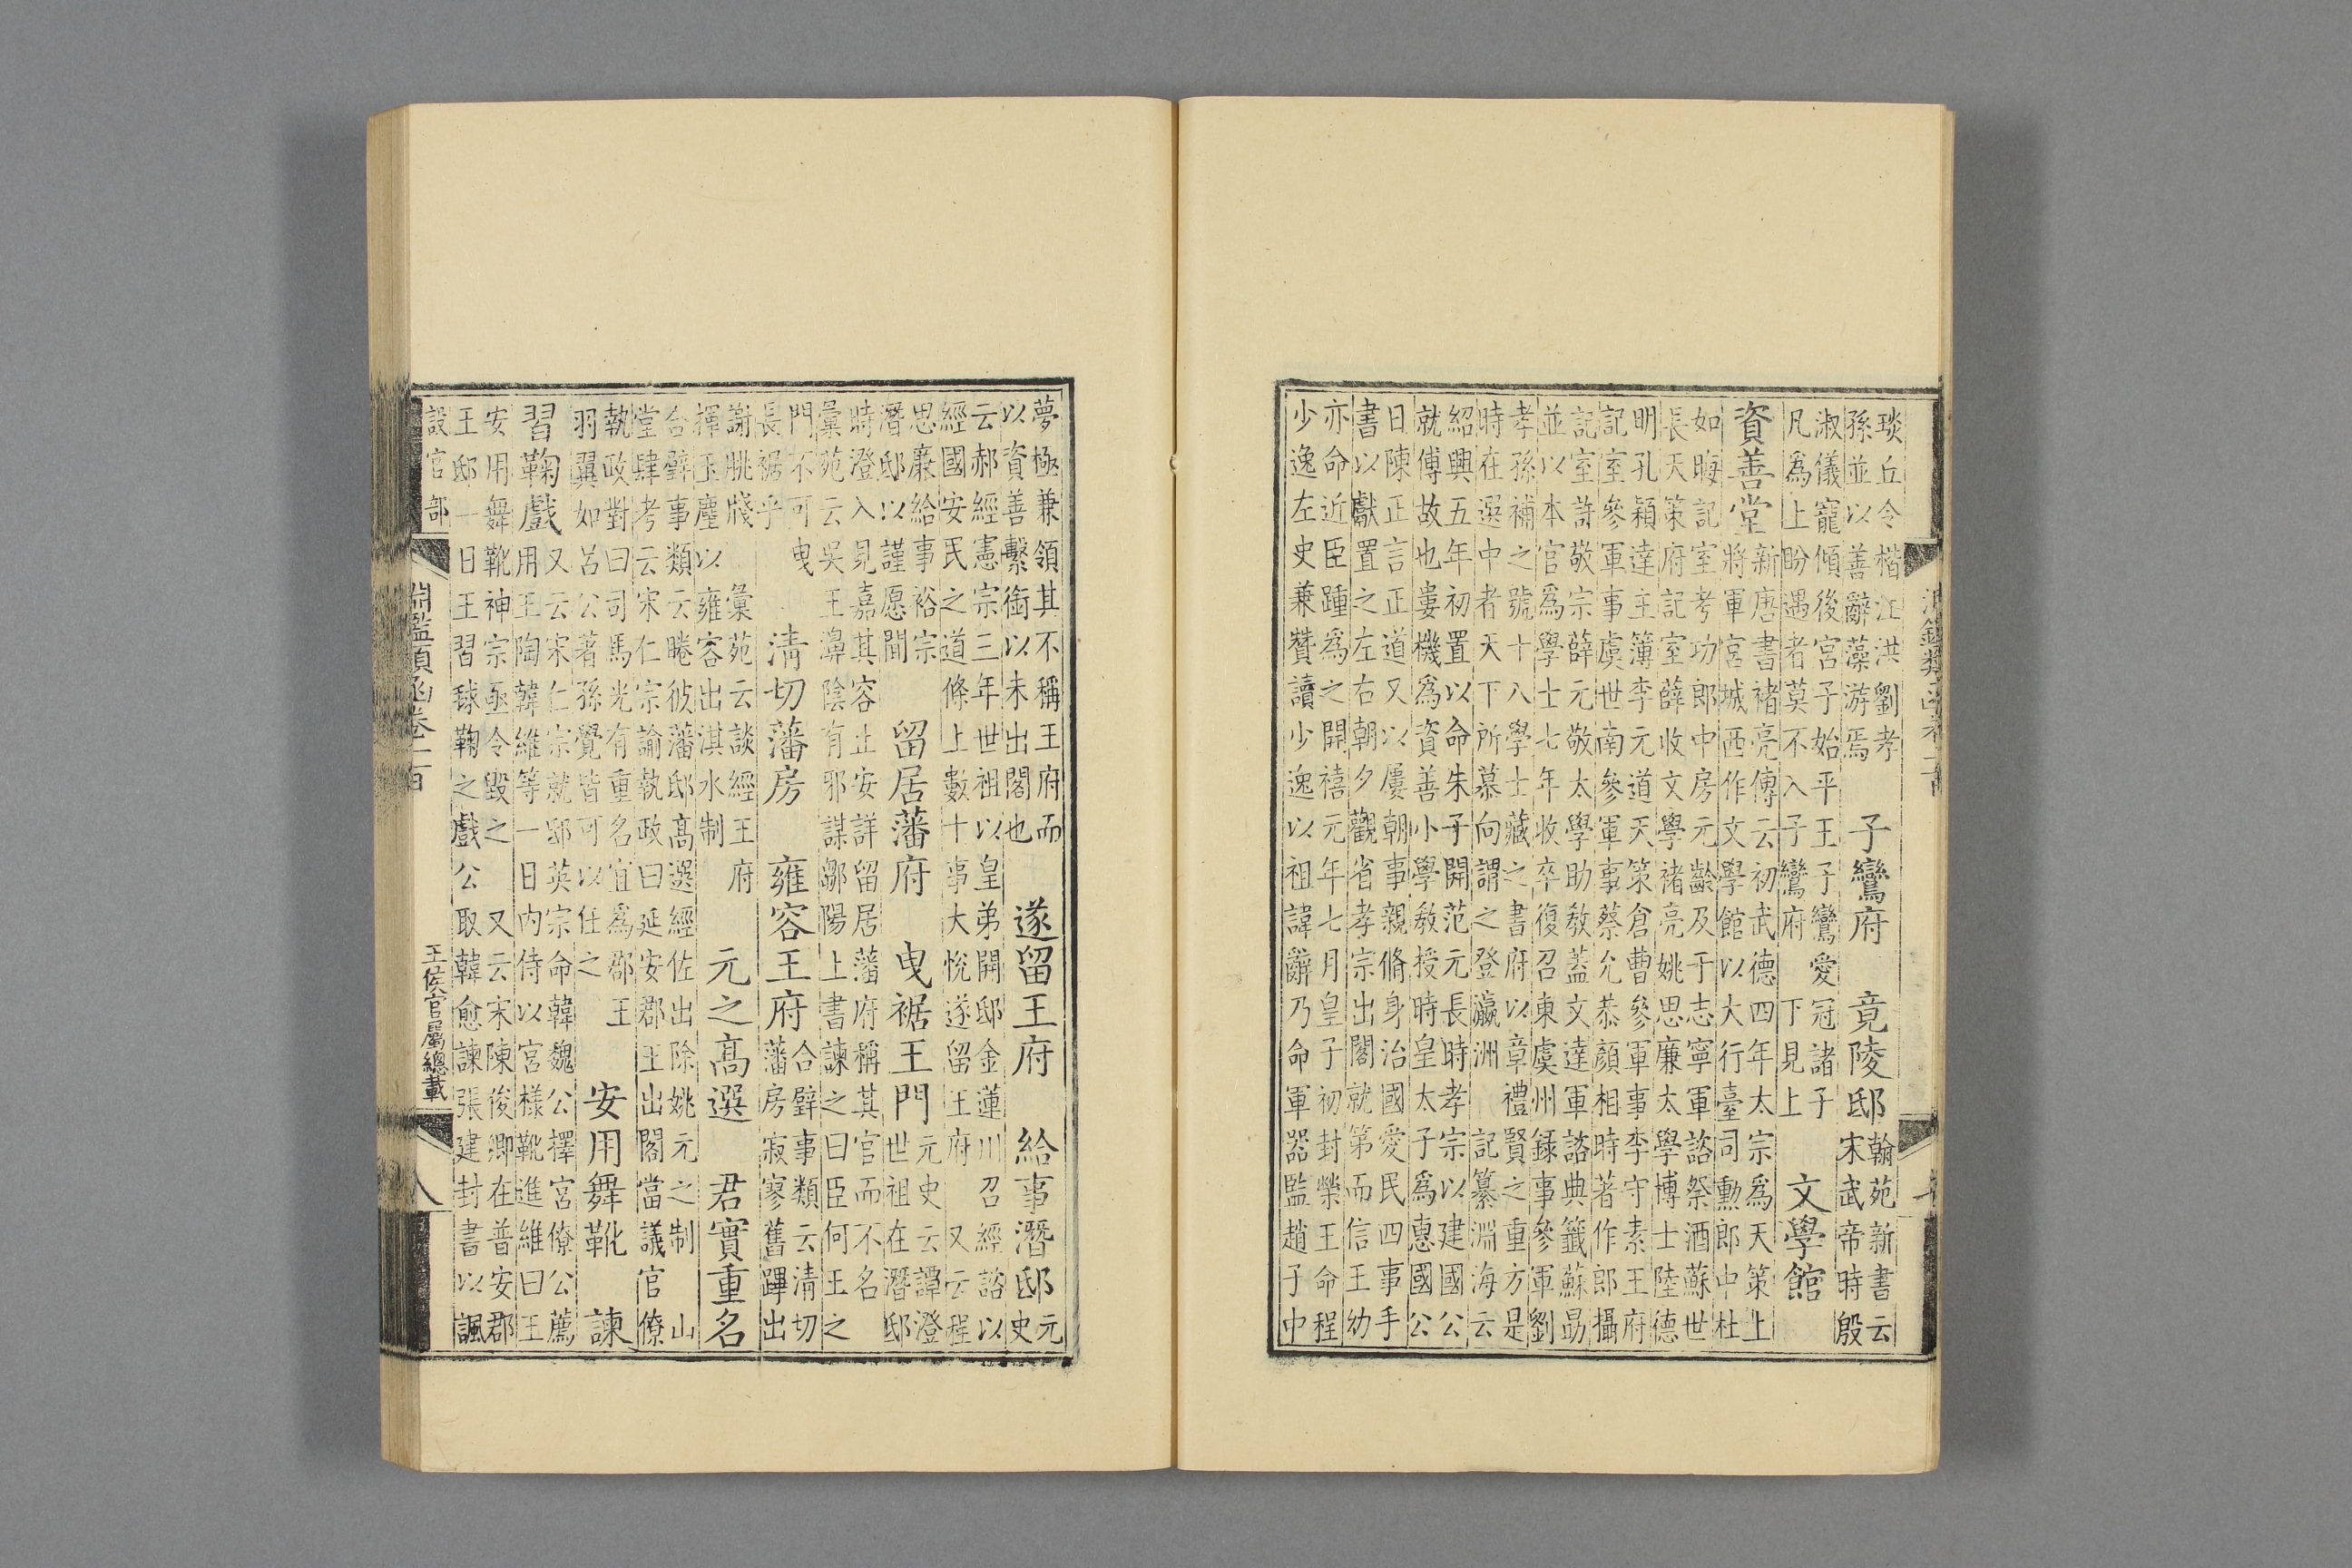 琰丘令楷江洪劉孝
孫並以善辭藻游焉
子鸞府　竟陵邸
翰苑新書云
宋武帝時殷
淑儀寵傾後宮子始平王子鸞愛冠諸子
凡為上盼遇者莫不入子鸞府　下見上
文學館
資善堂
新唐書褚亮傳云初武德四年太宗為天策上
將軍宮城西作文學館以大行臺司勳郎中杜
如晦記室考功郎中房元齡及于志寧軍諮祭酒蘇世
長天策府記室薛收文學褚亮姚思廉太學博士陸德
明孔穎達主簿李元道天策倉曹參軍事李守素王府
記室參軍事虞世南參軍事蔡允恭顏相時著作郎攝
記室許敬宗薛元敬太學助教蓋文達軍諮典籤蘇勗
並以本官為學士七年收卒復召東虞州錄事參軍劉
孝孫補之號十八學士藏之書府以章禮賢之重方是
時在選中者天下所慕向謂之登瀛洲　記纂淵海云
紹興五年初置以命朱子開范元長時孝宗以建國公
就傅故也婁機為資善小學教授時皇太子為惠國公
日陳正言正道又以屢朝事親脩身治國愛民四事手
書以獻置之左右朝夕觀省孝宗出閣就第而信王幼
亦命近臣踵為之開禧元年七月皇子初封榮王命程
少逸左史兼贊讀少逸以祖諱辭乃命軍器監趙子中
夢極兼領其不稱王府而
以資善繫銜以未出閣也
遂留王府　給事潛邸
元
史
云郝經憲宗三年世祖以皇弟開邸金蓮川召經諮以
經國安民之道條上數十事大悅遂留王府　又云程
思廉給事裕宗
潛邸以謹愿聞
留居藩府　曳裾王門
元史云譚澄
世祖在潛邸
時澄入見嘉其容止安詳留居藩府稱其官而不名
彙苑云吳王濞陰有邪謀鄒陽上書諫之曰臣何王之
門不可曳
長裾乎
清切藩房　雍容王府
合璧事類云清切
藩房寂寥舊蹕出
謝朓牋　彙苑云談經王府
揮玉麈以雍容出淇水制
元之高選　君實重名
合璧事類云睠彼藩邸高選經佐出除姚元之制　山
堂肆考云宋仁宗諭執政曰延安郡王出閣當議官僚
執政對曰司馬光有重名宜為郡王
羽翼如呂公著孫覺皆可以任之
安用舞靴　諫
習鞠戲
又云宋仁宗就邸英宗命韓魏公擇宮僚公薦
用王陶韓維等一日内侍以宮樣靴進維曰王
安用舞靴神宗亟令毀之　又云宋陳俊卿在普安郡
王邸一日王習毬鞠之戲公取韓愈諫張建封書以諷
設官部　淵鑑類函卷一百　王侯官屬總載　八